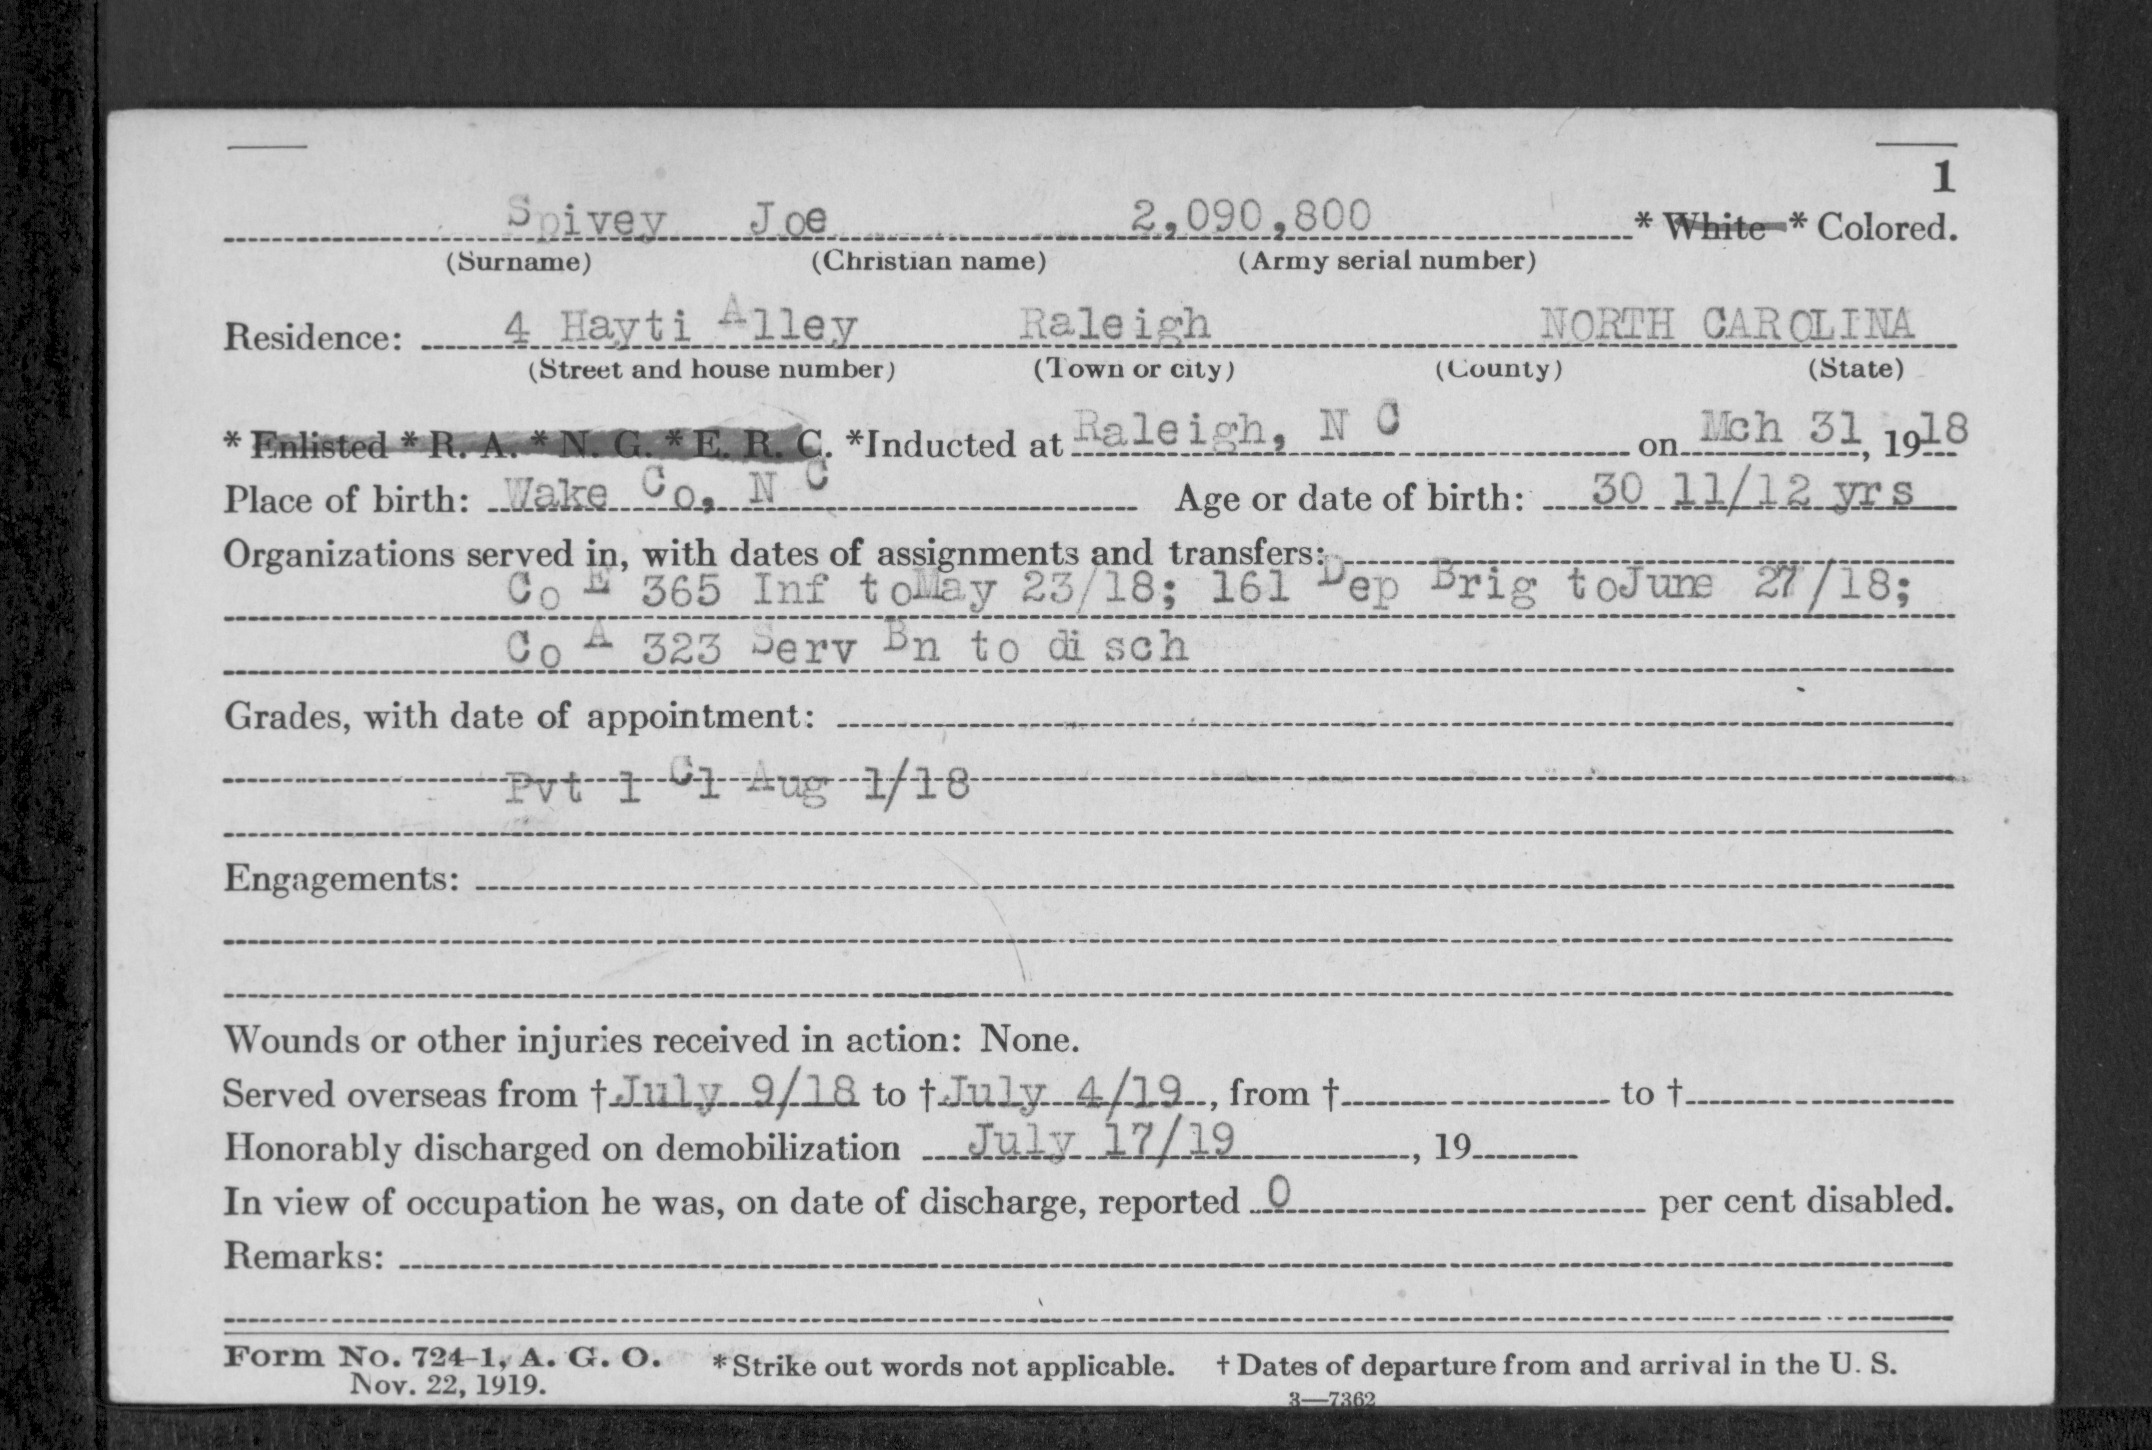 1
Spivey Joe 2,090,800 * White * Colored.
(Surname) (Christian name) (Army serial number)
Residence: 4 Hayti Alley Raleigh NORTH CAROLINA
(Street and house number) (Town or city) (County) (State)
* Enlisted * R. A. * N. G. * E. R. C. *Inducted at Raleigh, N C on Mch 31, 1918
Place of birth: Wake Co, N C Age or date of birth: 30 11/12 yrs
Organizations served in, with dates of assignments and transfers:
Co E 365 Inf toMay 23/18; 161 Dep Brig toJune 27/18;
Co A 323 Serv Bn to disch
Grades, with date of appointment:
Pvt 1 Cl Aug 1/18
Engagements:
Wounds or other injuries received in action: None.
Served overseas from † July 9/18 to † July 4/19, from † to †
Honorably discharged on demobilization July 17/19, 19
In view of occupation he was, on date of discharge, reported 0 per cent disabled.
Remarks:
Form No. 724-1, A. G. O. *Strike out words not applicable. † Dates of departure from and arrival in the U. S.
Nov. 22, 1919.
3—7362